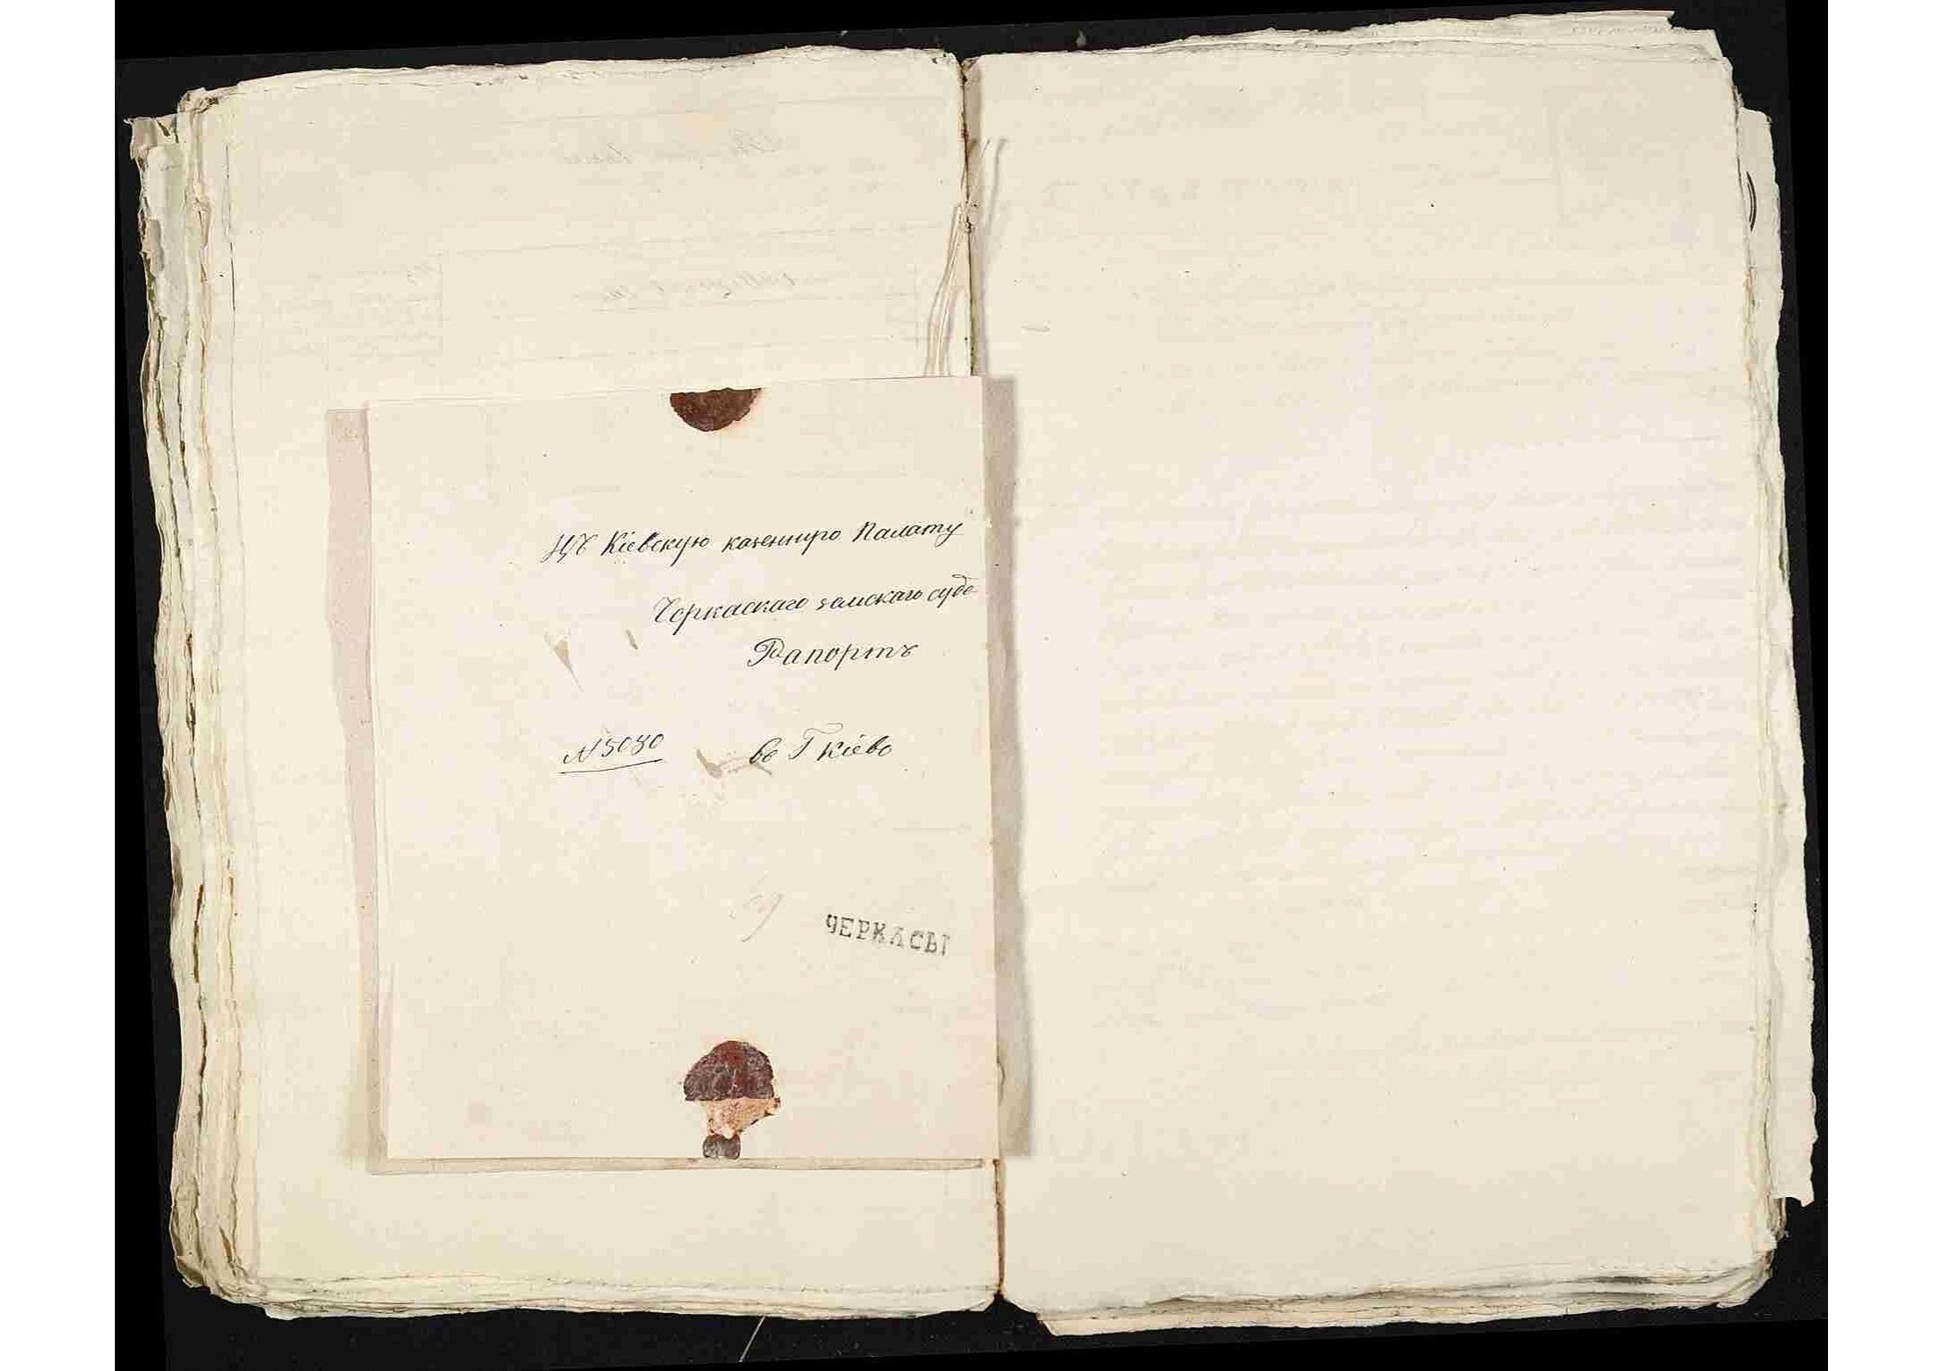 Въ Кіевскую казенную Палату
Черкаскаго земскаго суда
Рапортъ
N 5030
въ Г Кіевѣ
ЧЕРКАСЫ